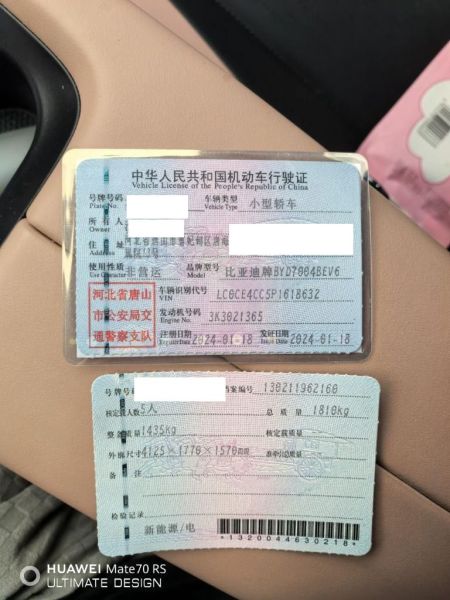 中华人民共和国机动车行驶证
Vehicle License of the People's Republic of China
号牌号码 车辆类型 小型轿车
Plate No. Vehicle Type
所有人
住址 河北省唐山市曹妃甸区唐海
使用性质 非营运 品牌型号 比亚迪牌BYD7004BEV6
Use Character Model
河北省唐山
市公安局交
通警察支队
车辆识别代号 LC0CE4CC5P1618632
VIN
发动机号码 3K3021365
Engine No.
注册日期 2024-01-18 发证日期 2024-01-18
Register Date Issue Date
号牌号码 档案编号 130211962160
核定载人数 5人 总质量 1810kg
整备质量 1435kg 核定载质量
外廓尺寸 4125×1770×1570mm 准牵引总质量
备注
检验记录
新能源/电
*1320044630218*
HUAWEI Mate70 RS
ULTIMATE DESIGN